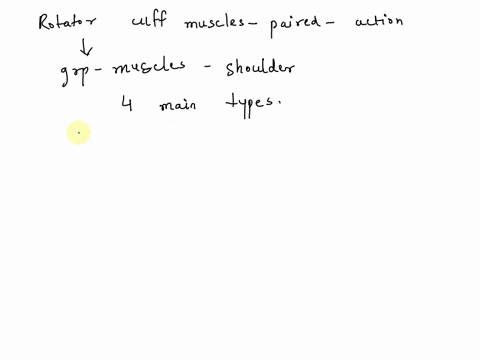 Rotator cuff muscles - paired - action
↓
grp - muscles - shoulder
4 main types.